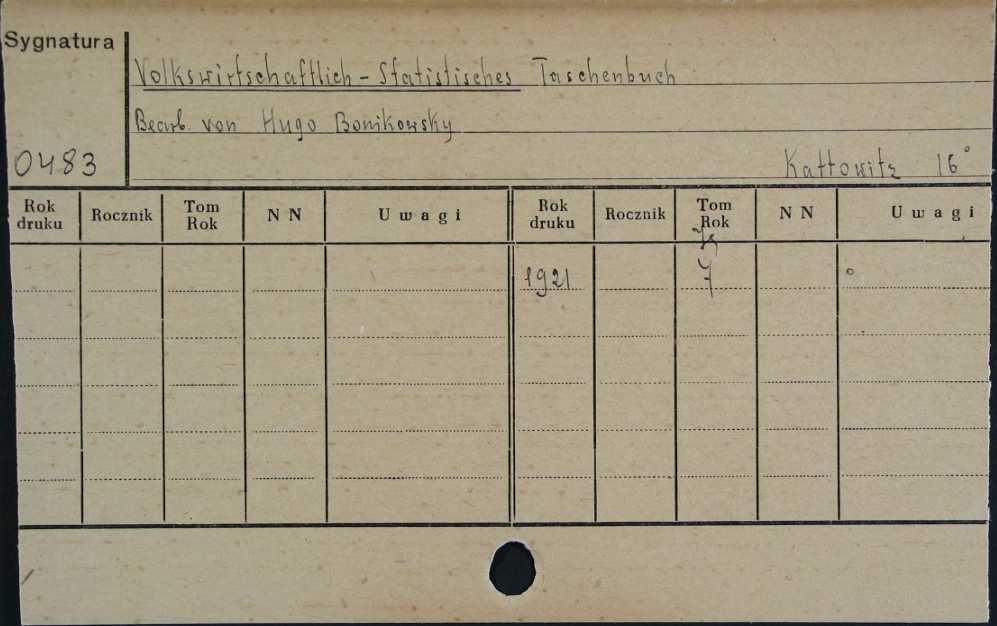 Sygnatura
Volkswirtschaftlich - Statistisches Taschenbuch
Bearb. von Hugo Bonikowsky
0483
Kattowitz 16°
Rok druku Rocznik Tom Rok N N Uwagi Rok druku Rocznik Tom Rok N N Uwagi
1921 7